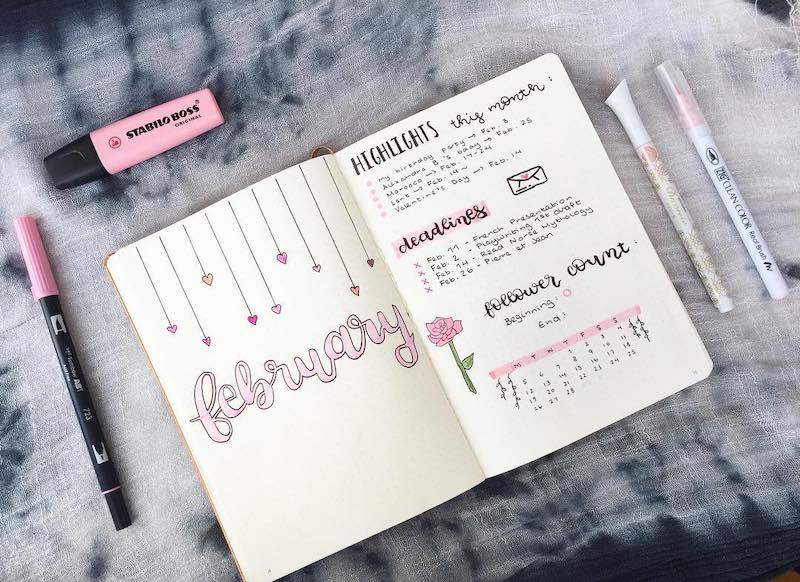 STABILO BOSS
ORIGINAL
Tombow ABT
723
february
HIGHLIGHTS this month:
my birthday party → Feb. 3
Alexandra B.'s bday → Feb. 25
Morocco → Feb. 17-24
Lent → Feb. 14 ~
Valentine's Day → Feb. 14
deadlines
x Feb. 11 - French Presentation
x Feb. 2 - Playwriting 1st draft
x Feb. 14 - Read Norse Mythology
x Feb. 26 - Pierre et Jean
follower count:
Beginning:
End:
M T W T F S S
1 2 3 4
5 6 7 8 9 10 11
12 13 14 15 16 17 18
19 20 21 22 23 24 25
26 27 28
ZIG CLEAN COLOR Real Brush